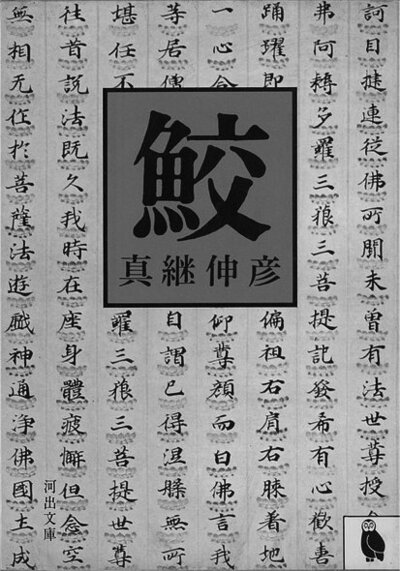 鮫
真継伸彦
訶目揵連從佛所聞未曾有法世尊授
弗阿耨多羅三藐三菩提記發希有心歡喜
踊躍即
偏袒右肩右膝著地
一心合
仰尊顏而白佛言我
等居僧
自謂已得涅槃無所
堪任不
羅三藐三菩提世尊
往昔說法既久我時在座身體疲懈但念空
無相无作於菩薩法遊戲神通淨佛國土成
河出文庫